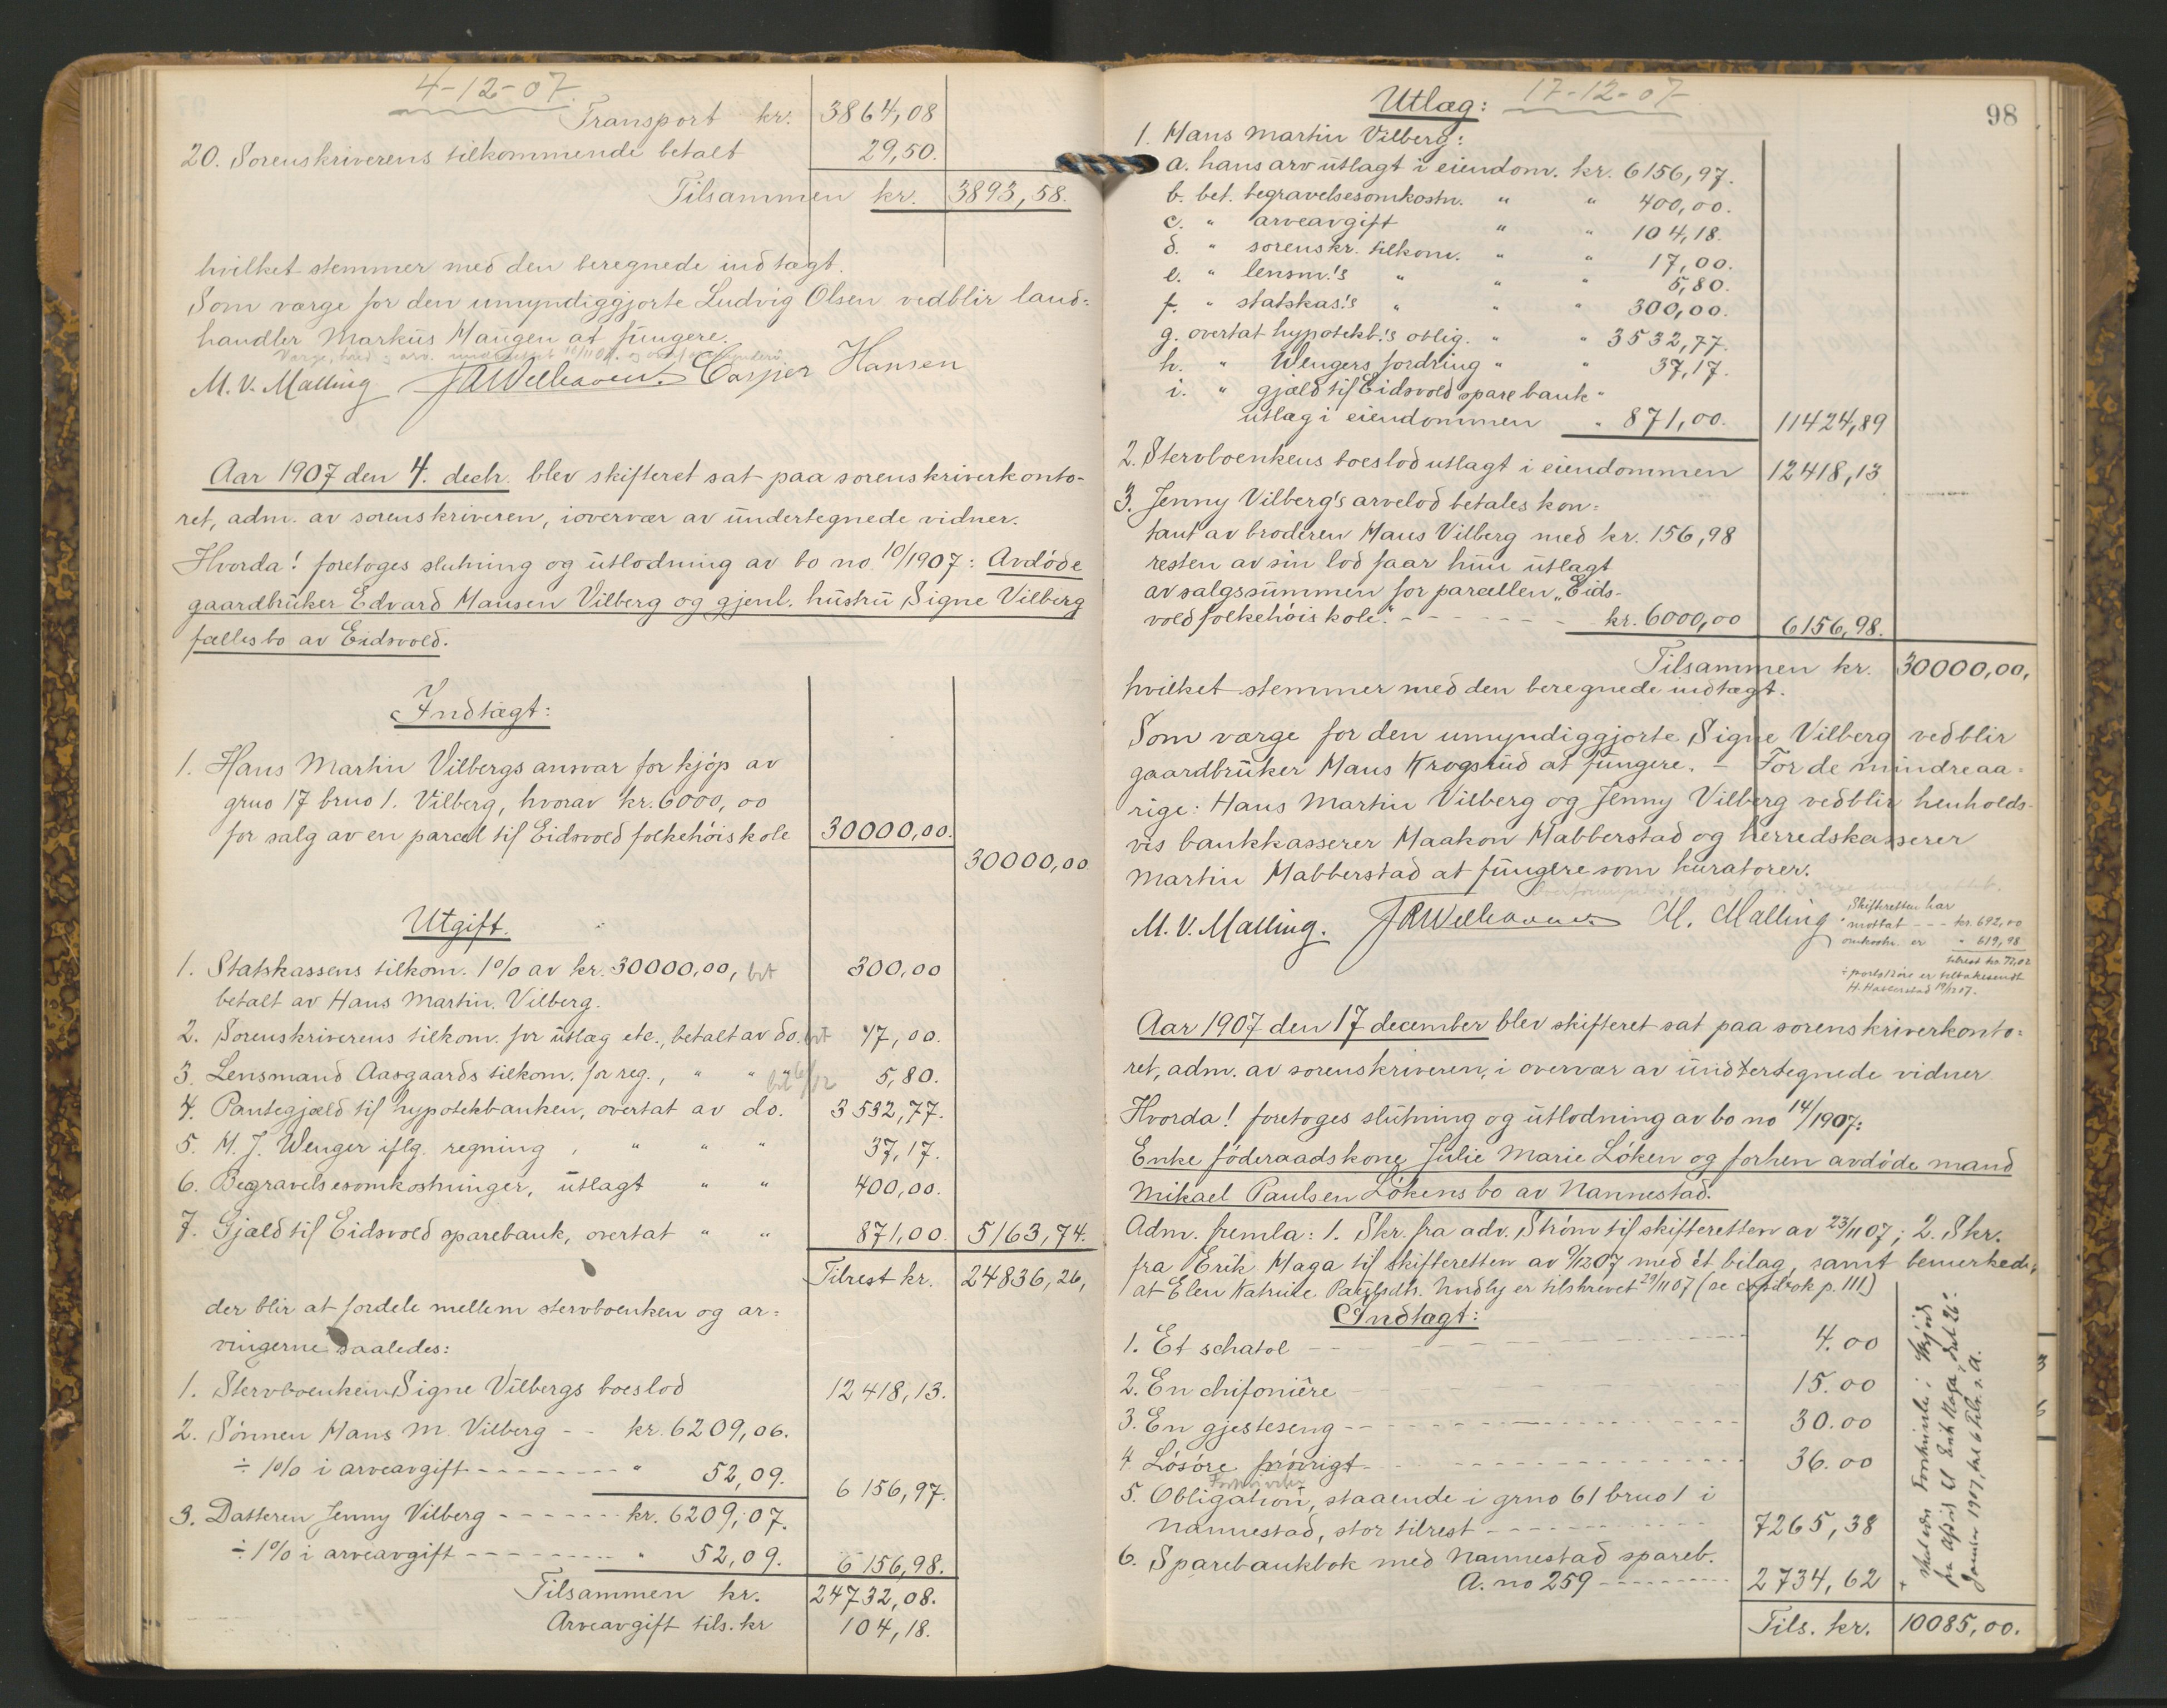 4-12-07.
Transport kr. 3864,08
20. Sorenskriverens tilkommende betalt 29,50.
Tilsammen kr. 3893,58.
hvilket stemmer med den beregnede indtægt.
Som værge for den umyndiggjorte Ludvig Olsen vedblir land=
handler Markus Haugen at fungere.
M. V. Malling JAWelhaven. Casper Hansen
Aar 1907 den 4. decbr. blev skifteret sat paa sorenskriverkonto-
ret, adm. av sorenskriveren, iovervær av undertegnede vidner.
Hvorda! foretoges slutning og utlodning av bo no. 10/1907: Avdøde
gaardbruker Edvard Hansen Vilberg og gjenl. hustru Signe Vilberg
fællesbo av Eidsvold.
Indtægt:
1. Hans Martin Vilbergs ansvar for kjøp av
grno 17 brno 1. Vilberg, hvorav kr. 6000,00
for salg av en parcel til Eidsvold folkehøiskole 30000,00.
30000,00
Utgift.
1. Statskassens tilkom. 1% av kr. 30000,00, bet 300,00
betalt av Hans Martin Vilberg.
2. Sorenskriverens tilkom. for utlæg etc., betalt av do. bet 17,00.
3. Lensmand Aasgaards tilkom. for reg., " " " bet 6/12 5,80.
4. Pantegjæld til hypotekbanken, overtat av do. 3532,77.
5. M. J. Wenger iflg. regning, " " " 37,17.
6. Begravelsesomkostninger, utlagt " " 400,00.
7. Gjæld til Eidsvold sparebank, overtat " " 871,00. 5163,74.
Tilrest kr. 24836,26,
der blir at fordele mellem stervboenken og ar=
vingerne saaledes:
1. Stervboenken Signe Vilbergs boeslod 12418,13.
2. Sønnen Hans M. Vilberg - - kr. 6209,06.
÷ 1% i arveavgift - - - - " 52,09. 6156,97.
3. Datteren Jenny Vilberg - - - - kr. 6209,07.
÷ 1% i arveavgift - - - - " 52,09. 6156,98.
Tilsammen kr. 24732,08.
Arveavgift tils. kr 104,18.
98
Utlæg: 17-12-07
1. Hans Martin Vilberg:
a. hans arv utlagt i eiendom. kr. 6156,97.
b. bet. begravelsesomkostn. " " 400,00.
c. " arveavgift " " 104,18.
d. " sorenskr. tilkom. " " 17,00.
e. " lensm.'s " " " 5,80.
f. " statskas.'s " " " 300,00.
g. overtat hypotekb.'s oblig. " " 3532,77.
h. " Wengers fordring " " 37,17.
i. " gjæld til Eidsvold sparebank "
utlæg i eiendommen " 871,00. 11424,89
2. Stervboenkens boeslod utlagt i eiendommen 12418,13
3. Jenny Vilberg's arvelod betales kon=
tant av broderen Hans Vilberg med kr. 156,98
resten av sin lod faar hun utlagt
av salgssummen for parcellen „Eids-
vold folkehøiskole." - - - - kr. 6000,00 6156,98.
Tilsammen kr. 30000,00,
hvilket stemmer med den beregnede indtægt.
Som værge for den umyndiggjorte Signe Vilberg vedblir
gaardbruker Hans Krogsrud at fungere. - For de mindreaa=
rige: Hans Martin Vilberg og Jenny Vilberg vedblir henholds-
vis bankkasserer Haakon Habberstad og herredskasserer
Martin Habberstad at fungere som kuratorer.
M. V. Malling. JAWelhaven. M. Malling
Skifteretten har
mottat - - - kr. 692,00
omkostn. er " 619,98
tilrest kr. 72,02
÷ porto 12 øre er tilbakesendt
H. Habberstad 19/12 07.
Aar 1907 den 17 december blev skifteret sat paa sorenskriverkonto=
ret, adm. av sorenskriveren, i overvær av undtertegnede vidner
Hvorda! foretoges slutning og utlodning av bo no 14/1907:
Enke føderaadskone Julie Marie Løken og forhen avdøde mand
Mikael Paulsen Løkens bo av Nannestad.
Adm. fremla: 1. Skr. fra adv. Strøm til skifteretten av 23/11 07; 2. Skr.
fra Erik Haga til skifteretten av 9/12 07 med ét bilag, samt bemerkede,
at Elen Katrine Paulsdtr. Nordby er tilskrevet 29/11 07 (se copibok p. 111)
Indtægt:
1. Et schatol - - - - 4.00
2. En chifoniére - - - - 15.00
3. En gjesteseng - - - - 30.00
4. Løsøre forøvrigt - - - - 36.00
5. Obligation, staaende i grno 61 brno 1 i
Nannestad, stor tilrest - - - - 7265,38
6. Sparebankbok med Nannestad spareb.
A. no 259 - - - - 2734,62
Tils. kr. 10085,00.